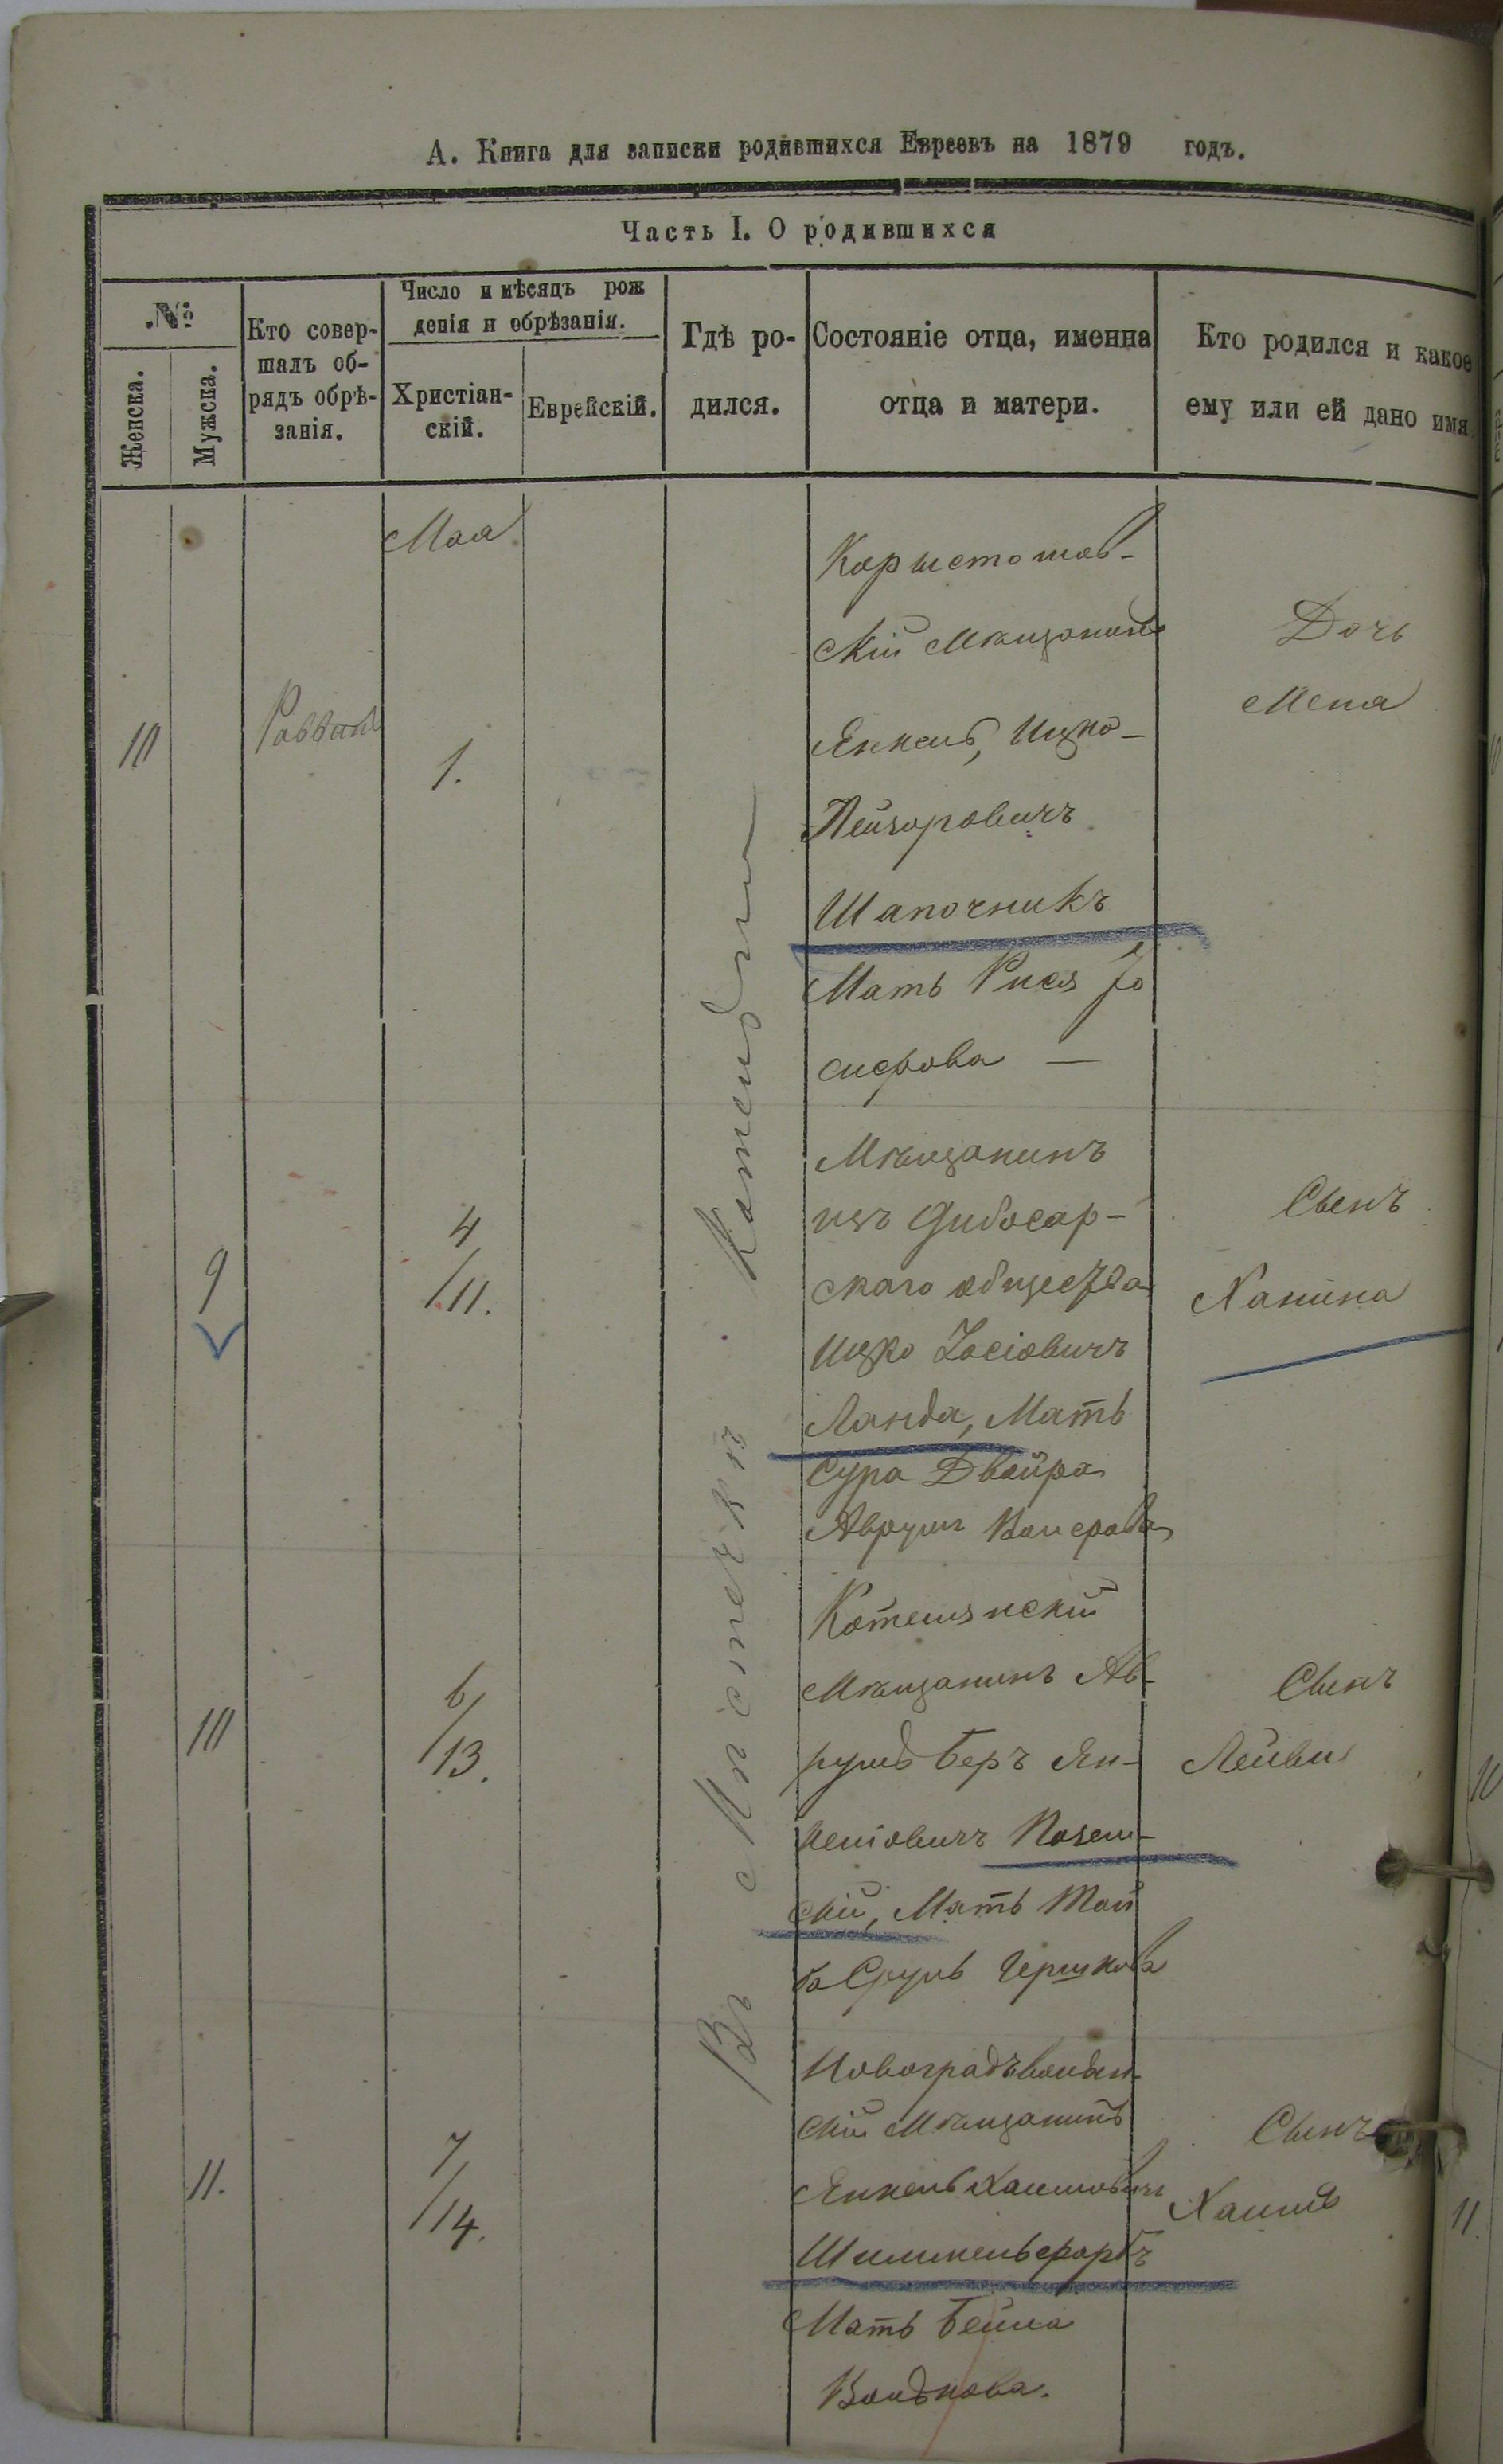 А. Книга для записки родившихся Евреевъ на 1879 годъ.
Часть I. О родившихся
№
Женска.
Мужска.
Кто совер-
шалъ об-
рядъ обрѣ-
занія.
Число и мѣсяцъ рож
денія и обрѣзанія.
Христіан-
скій.
Еврейскій.
Гдѣ ро-
дился.
Состояніе отца, именна
отца и матери.
Кто родился и какое
ему или ей дано имя.
Мая
Въ Мѣстечкѣ
10
Раввинъ
1.
скій мѣщанинъ
Янкель, Ицко-
Лейзоровичъ
Шапочникъ
Мать Рися Іо
сифова —
Дочь
9
4
/11.
Мѣщанинъ
изъ Дубосар-
скаго общества
Ицко Іосіовичъ
Ланда, Мать
Сура Двойра
Сынъ
Ханина
10
6/
/13.
мѣщанинъ Ав-
румъ Беръ Ян-
келіовичъ
скій, Мать Той
ба Сруль Гершкова
Сынъ
Лейви
11.
7
/14.
Новоградъволын-
скій мѣщанинъ
Янкель Хаимовичъ
Шимельфарбъ
Мать Бейла
Волькова.
Сынъ
Хаимъ
10
11.